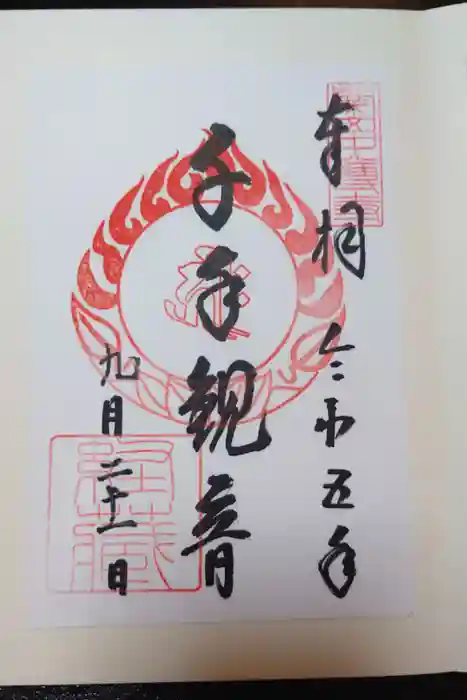 奉拝 令和五年
千手観音
九月二十一日